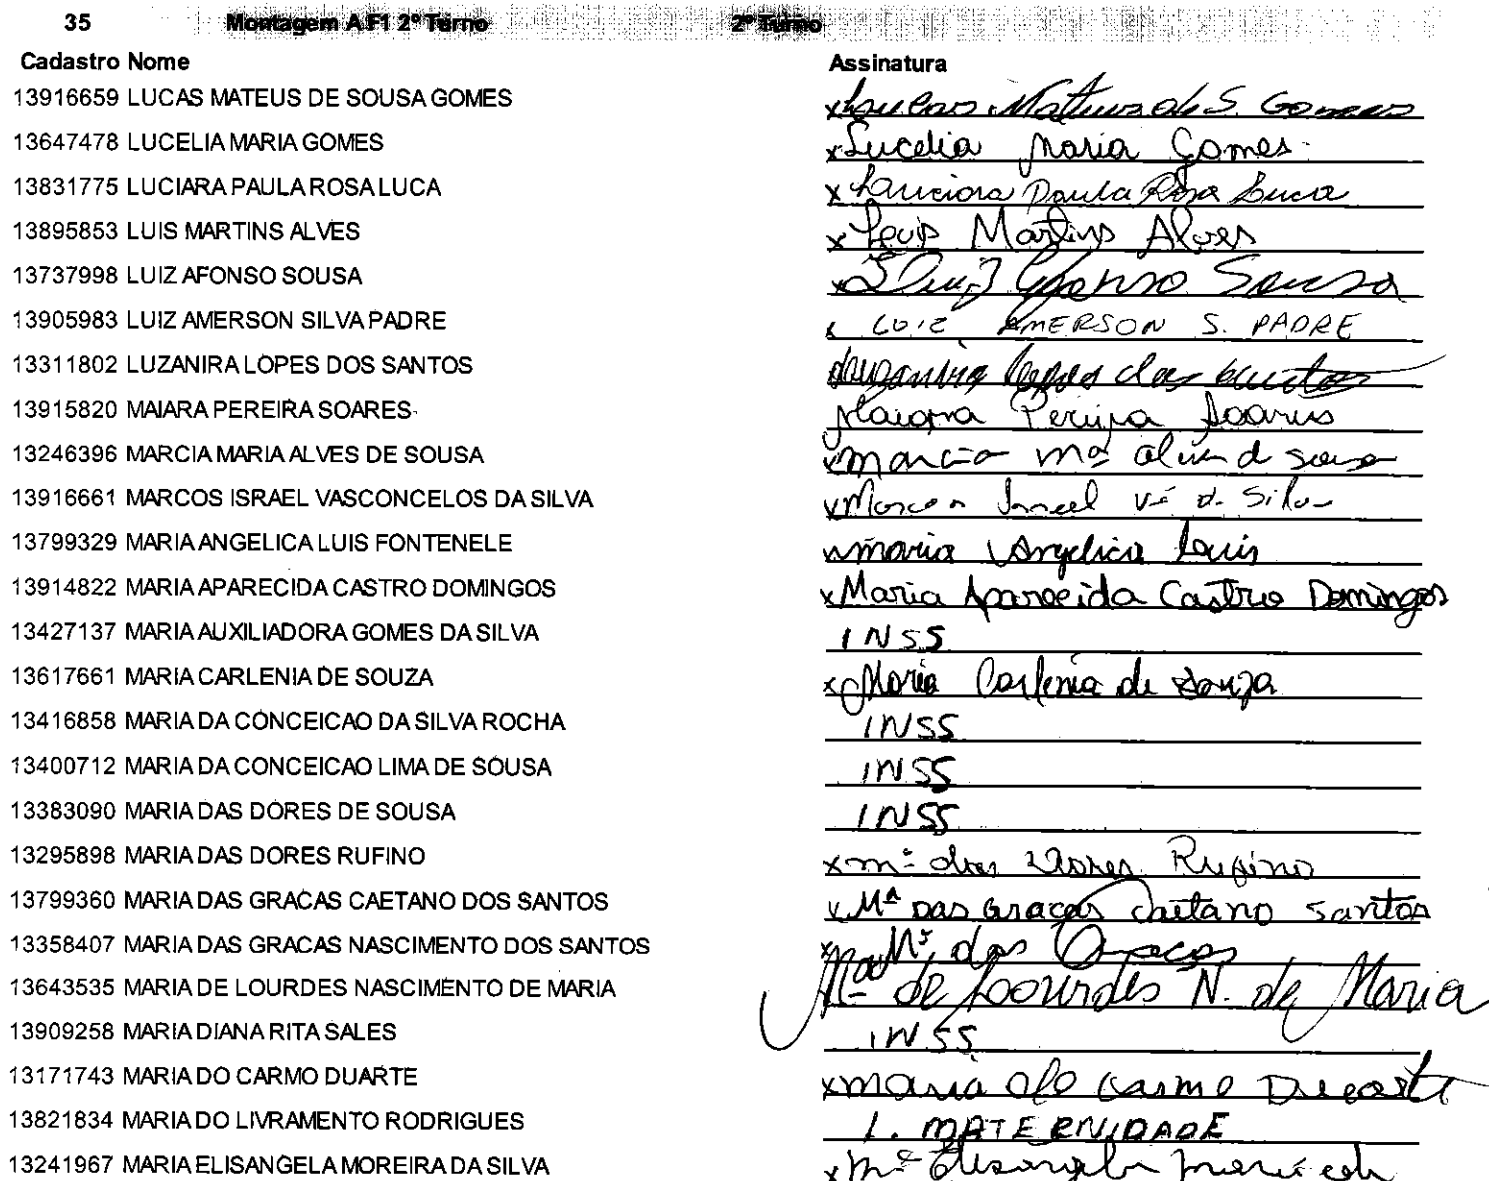 35 Montagem A F1 2º Turno 2º Turno
Cadastro Nome Assinatura
13916659 LUCAS MATEUS DE SOUSA GOMES x Loucas Mateus de S. Gomes
13647478 LUCELIA MARIA GOMES x Lucelia Maria Gomes
13831775 LUCIARA PAULA ROSA LUCA x Lauciara Paula Rosa Luca
13895853 LUIS MARTINS ALVES x Luis Martins Alves
13737998 LUIZ AFONSO SOUSA x Luiz Afonso Sousa
13905983 LUIZ AMERSON SILVA PADRE x LUIZ AMERSON S. PADRE
13311802 LUZANIRA LOPES DOS SANTOS Luzanira lopes dos Santos
13915820 MAIARA PEREIRA SOARES Maiara Pereira Soares
13246396 MARCIA MARIA ALVES DE SOUSA x marcia mª alves d sousa
13916661 MARCOS ISRAEL VASCONCELOS DA SILVA x Marcos Israel d. Silva
13799329 MARIA ANGELICA LUIS FONTENELE x maria Angelica Luis
13914822 MARIA APARECIDA CASTRO DOMINGOS x Maria Aparecida Castro Domingos
13427137 MARIA AUXILIADORA GOMES DA SILVA INSS
13617661 MARIA CARLENIA DE SOUZA x Maria Carlenia de Souza
13416858 MARIA DA CONCEICAO DA SILVA ROCHA INSS
13400712 MARIA DA CONCEICAO LIMA DE SOUSA INSS
13383090 MARIA DAS DORES DE SOUSA INSS
13295898 MARIA DAS DORES RUFINO x mª das Dores Rufino
13799360 MARIA DAS GRACAS CAETANO DOS SANTOS x Mª Das Graças Caetano Santos
13358407 MARIA DAS GRACAS NASCIMENTO DOS SANTOS x Mª das Graças
13643535 MARIA DE LOURDES NASCIMENTO DE MARIA Mª de Lourdes N. de Maria
13909258 MARIA DIANA RITA SALES INSS
13171743 MARIA DO CARMO DUARTE x maria do Carmo Duarte
13821834 MARIA DO LIVRAMENTO RODRIGUES L. MATERNIDADE
13241967 MARIA ELISANGELA MOREIRA DA SILVA x Mª Elisangela